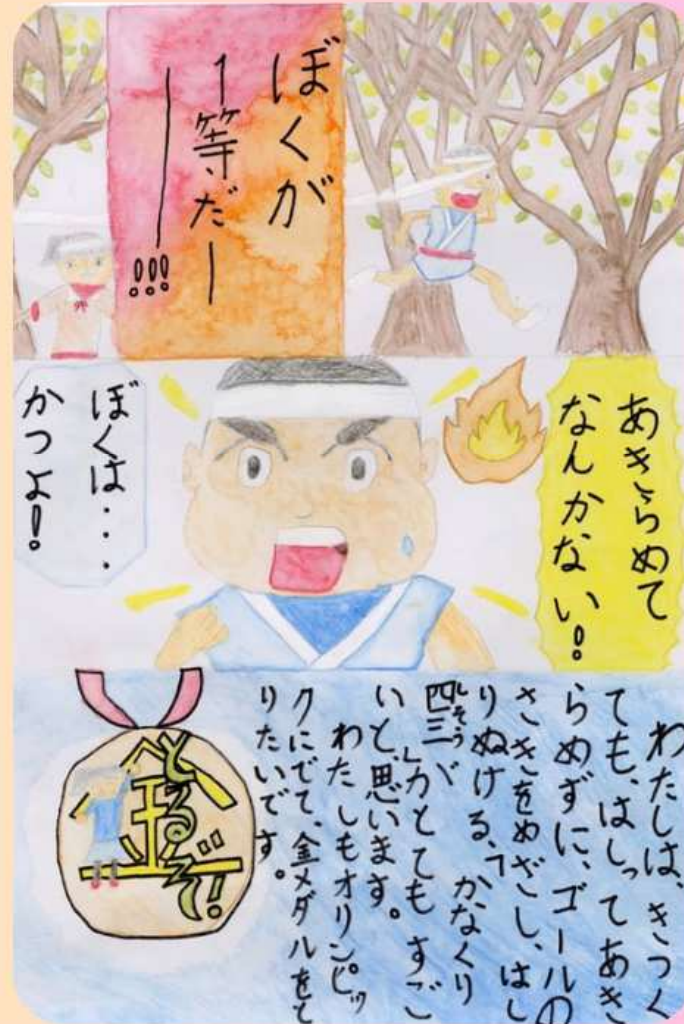 ぼくが
1等だー
ー!!!
あきらめて
なんかない!
ぼくは・・・
かつよ!
わたしは、きつく
ても、はしってあき
らめずに、ゴールの
さきをめざし、はし
りぬける、「かなくり
しそう
四三」がとてもすご
いと思います。
わたしもオリンピッ
クにでて、金メダルをと
りたいです。
とるぞ!
金